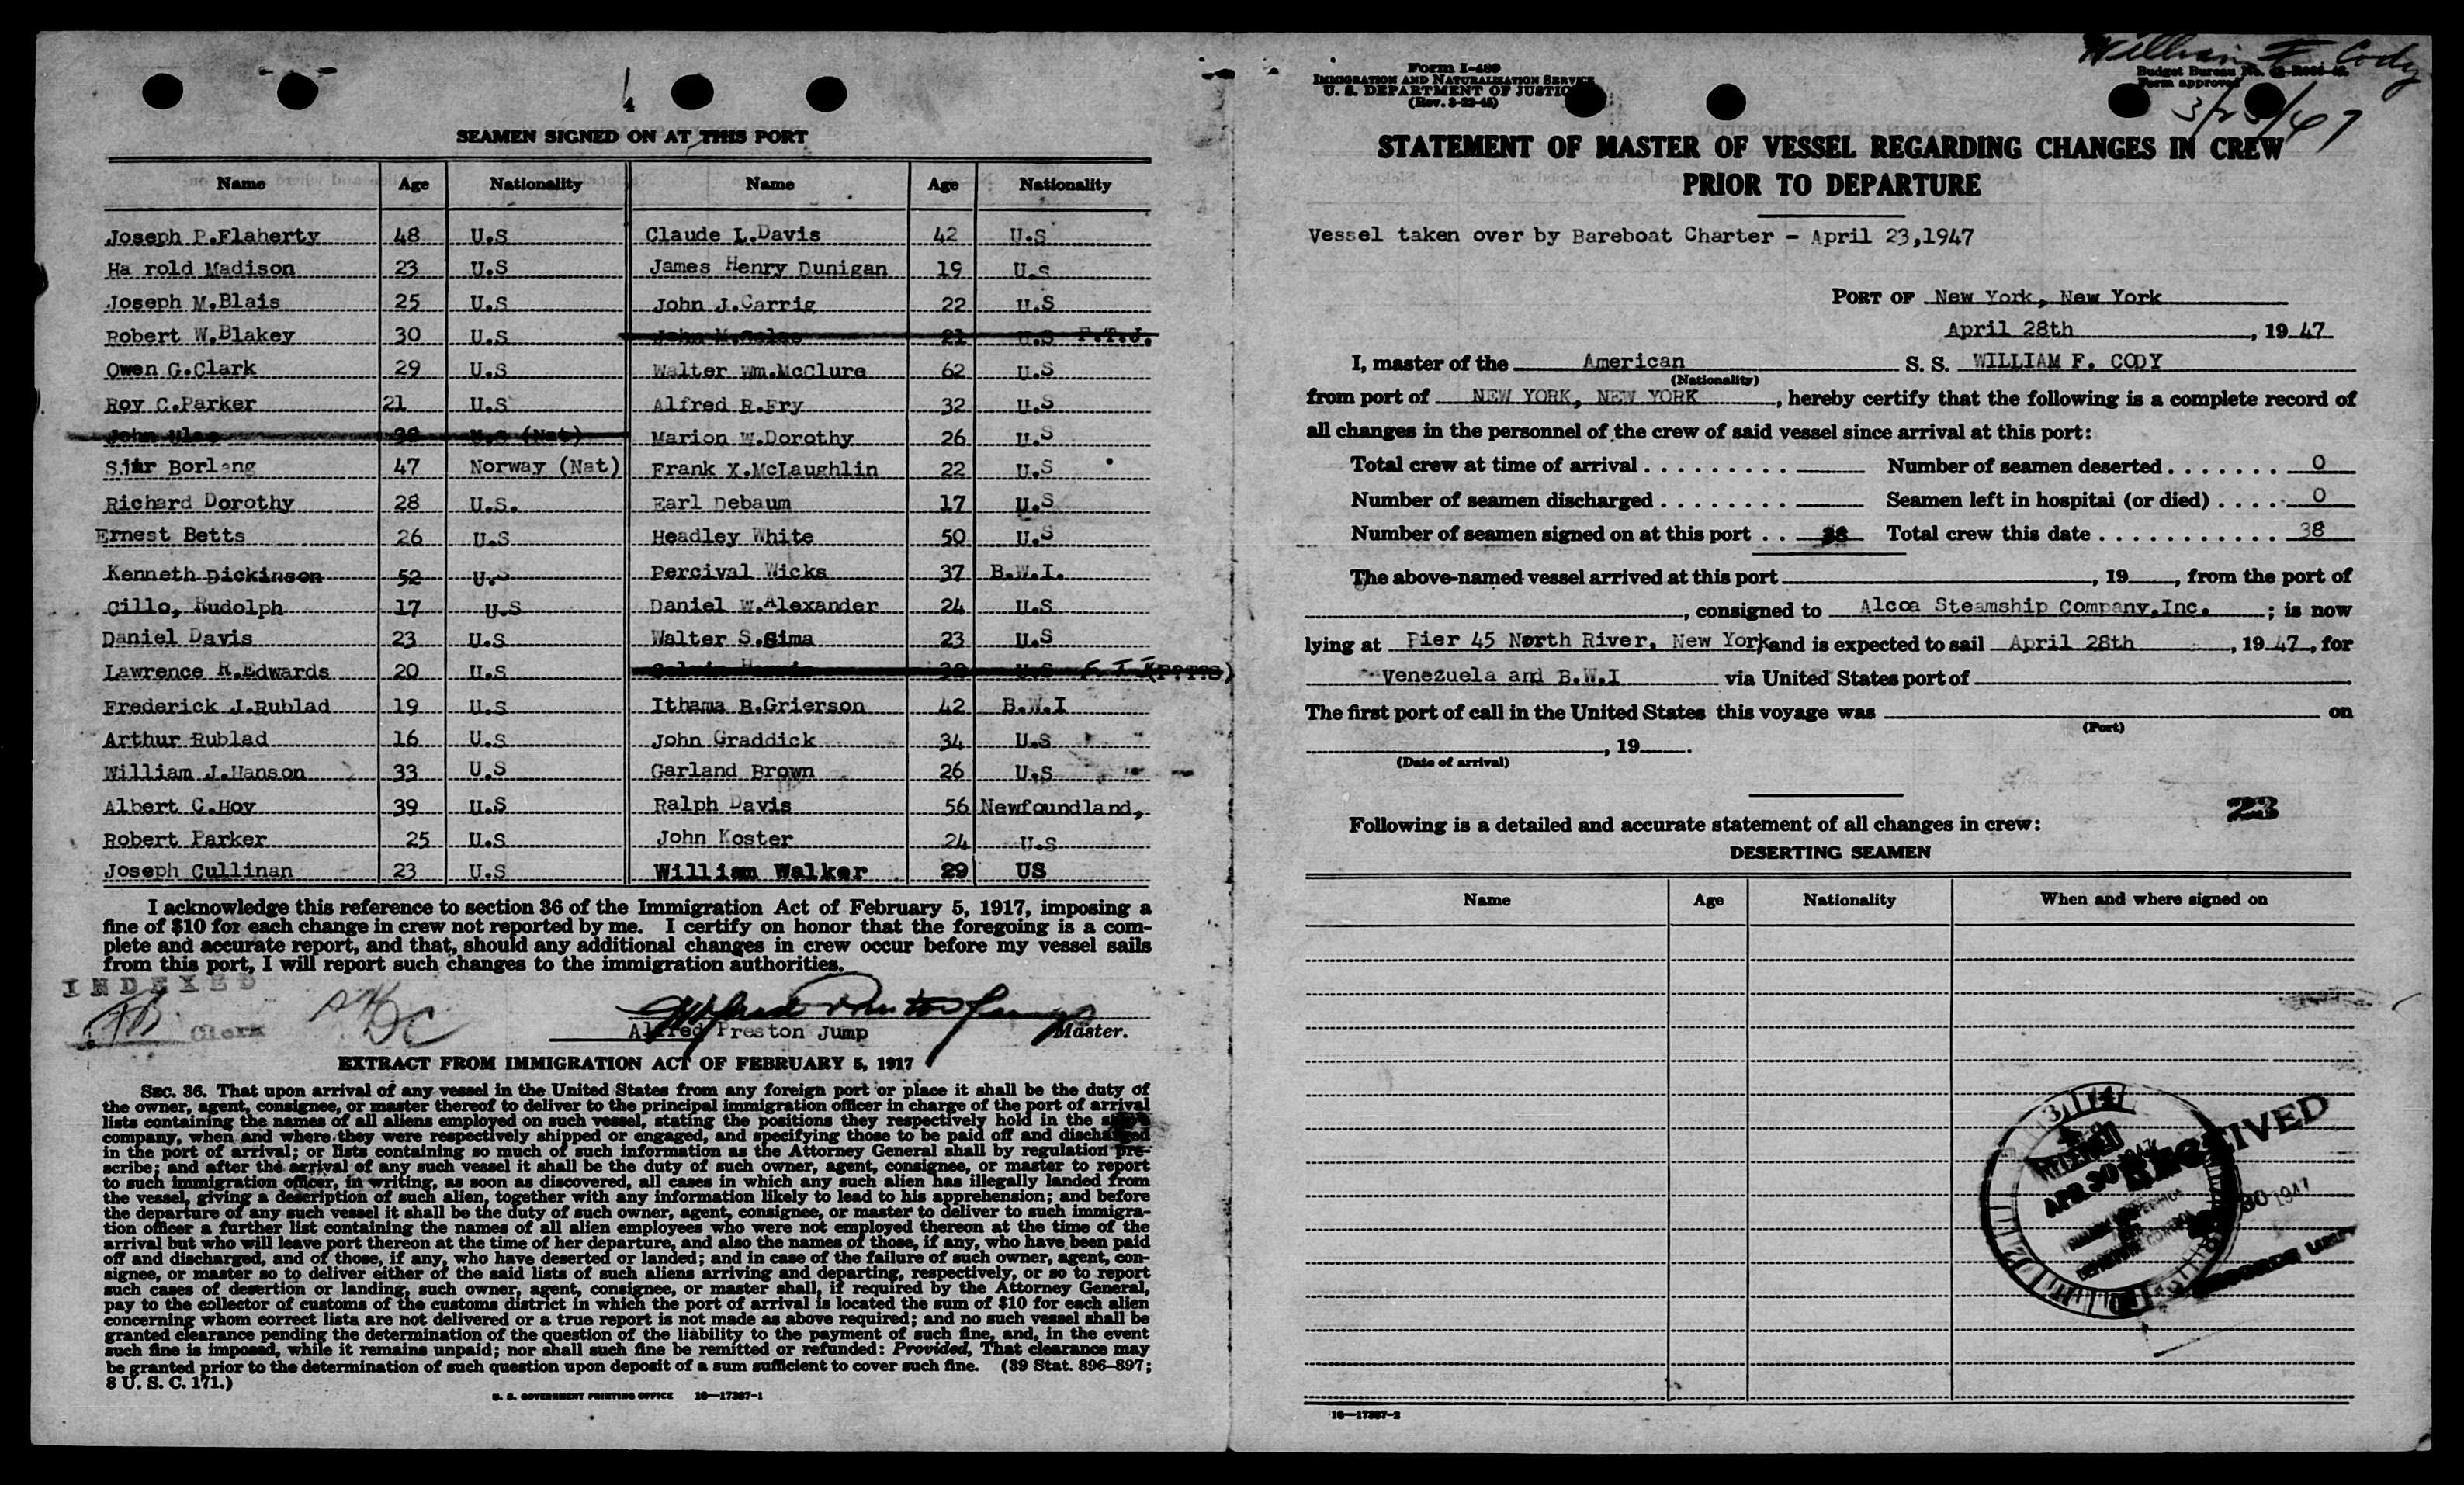 4
SEAMEN SIGNED ON AT THIS PORT
Name Age Nationality Name Age Nationality
Joseph P.Flaherty 48 U.S Claude L.Davis 42 U.S
Ha rold Madison 23 U.S James Henry Dunigan 19 U.s
Joseph M.Blais 25 U.S John J.Carrig 22 U.S
Robert W.Blakey 30 U.S John M. 21 U.S F.T.J.
Owen G.Clark 29 U.S Walter Wm.McClure 62 U.S
Roy C.Parker 21 U.S Alfred R.Fry 32 U.S
John U.S (Nat) Marion W.Dorothy 26 U.S
Borlang 47 Norway (Nat) Frank X.McLaughlin 22 U.S
Richard Dorothy 28 U.S. Earl Debaum 17 U.S
Ernest Betts 26 U.S Headley White 50 U.S
Kenneth Dickinson 52 U.S Percival Wicks 37 B.W.I.
Cillo, Rudolph 17 U.S Daniel W.Alexander 24 U.S
Daniel Davis 23 U.S Walter S.Sima 23 U.S
Lawrence R.Edwards 20 U.S U.S
Frederick J.Rublad 19 U.S Ithama B.Grierson 42 B.W.I
Arthur Rublad 16 U.S John Graddick 34 U.S
William J.Hanson 33 U.S Garland Brown 26 U.S
Albert C.Hoy 39 U.S Ralph Davis 56 Newfoundland,
Robert Parker 25 U.S John Koster 24 U.S
Joseph Cullinan 23 U.S William Walker 29 US
I acknowledge this reference to section 36 of the Immigration Act of February 5, 1917, imposing a
fine of $10 for each change in crew not reported by me. I certify on honor that the foregoing is a com-
plete and accurate report, and that, should any additional changes in crew occur before my vessel sails
from this port, I will report such changes to the immigration authorities.
INDEXED
Clerk
Alfred Preston Jump
Alfred Preston Jump Master.
EXTRACT FROM IMMIGRATION ACT OF FEBRUARY 5, 1917
SEC. 36. That upon arrival of any vessel in the United States from any foreign port or place it shall be the duty of
the owner, agent, consignee, or master thereof to deliver to the principal immigration officer in charge of the port of arrival
lists containing the names of all aliens employed on such vessel, stating the positions they respectively hold in the
company, when and where they were respectively shipped or engaged, and specifying those to be paid off and discharged
in the port of arrival; or lists containing so much of such information as the Attorney General shall by regulation pre-
scribe; and after the arrival of any such vessel it shall be the duty of such owner, agent, consignee, or master to report
to such immigration officer, in writing, as soon as discovered, all cases in which any such alien has illegally landed from
the vessel, giving a description of such alien, together with any information likely to lead to his apprehension; and before
the departure of any such vessel it shall be the duty of such owner, agent, consignee, or master to deliver to such immigra-
tion officer a further list containing the names of all alien employees who were not employed thereon at the time of the
arrival but who will leave port thereon at the time of her departure, and also the names of those, if any, who have been paid
off and discharged, and of those, if any, who have deserted or landed; and in case of the failure of such owner, agent, con-
signee, or master so to deliver either of the said lists of such aliens arriving and departing, respectively, or so to report
such cases of desertion or landing, such owner, agent, consignee, or master shall, if required by the Attorney General,
pay to the collector of customs of the customs district in which the port of arrival is located the sum of $10 for each alien
concerning whom correct lists are not delivered or a true report is not made as above required; and no such vessel shall be
granted clearance pending the determination of the question of the liability to the payment of such fine, and, in the event
such fine is imposed, while it remains unpaid; nor shall such fine be remitted or refunded: Provided, That clearance may
be granted prior to the determination of such question upon deposit of a sum sufficient to cover such fine. (39 Stat. 896-897;
8 U. S. C. 171.)
U. S. GOVERNMENT PRINTING OFFICE 16—17387-1
William F. Cody
3/25/47
Form I-489
IMMIGRATION AND NATURALIZATION SERVICE
U. S. DEPARTMENT OF JUSTICE
(Rev. 3-22-45)
Budget Bureau No.
Form approved
STATEMENT OF MASTER OF VESSEL REGARDING CHANGES IN CREW
PRIOR TO DEPARTURE
Vessel taken over by Bareboat Charter - April 23,1947
PORT OF New York, New York
April 28th, 19 47
I, master of the American S. S. WILLIAM F. CODY
(Nationality)
from port of NEW YORK, NEW YORK, hereby certify that the following is a complete record of
all changes in the personnel of the crew of said vessel since arrival at this port:
Total crew at time of arrival . . . . . . . . . Number of seamen deserted . . . . . . . 0
Number of seamen discharged . . . . . . . . Seamen left in hospital (or died) . . . . 0
Number of seamen signed on at this port . . 38 Total crew this date . . . . . . . . . . . . 38
The above-named vessel arrived at this port , 19 , from the port of
, consigned to Alcoa Steamship Company,Inc. ; is now
lying at Pier 45 North River, New York and is expected to sail April 28th , 19 47, for
Venezuela and B.W.I via United States port of
The first port of call in the United States this voyage was on
(Port)
, 19 .
(Date of arrival)
23
Following is a detailed and accurate statement of all changes in crew:
DESERTING SEAMEN
Name Age Nationality When and where signed on
RECEIVED
APR 30 1947
RECORDS UNIT
16—17387-2